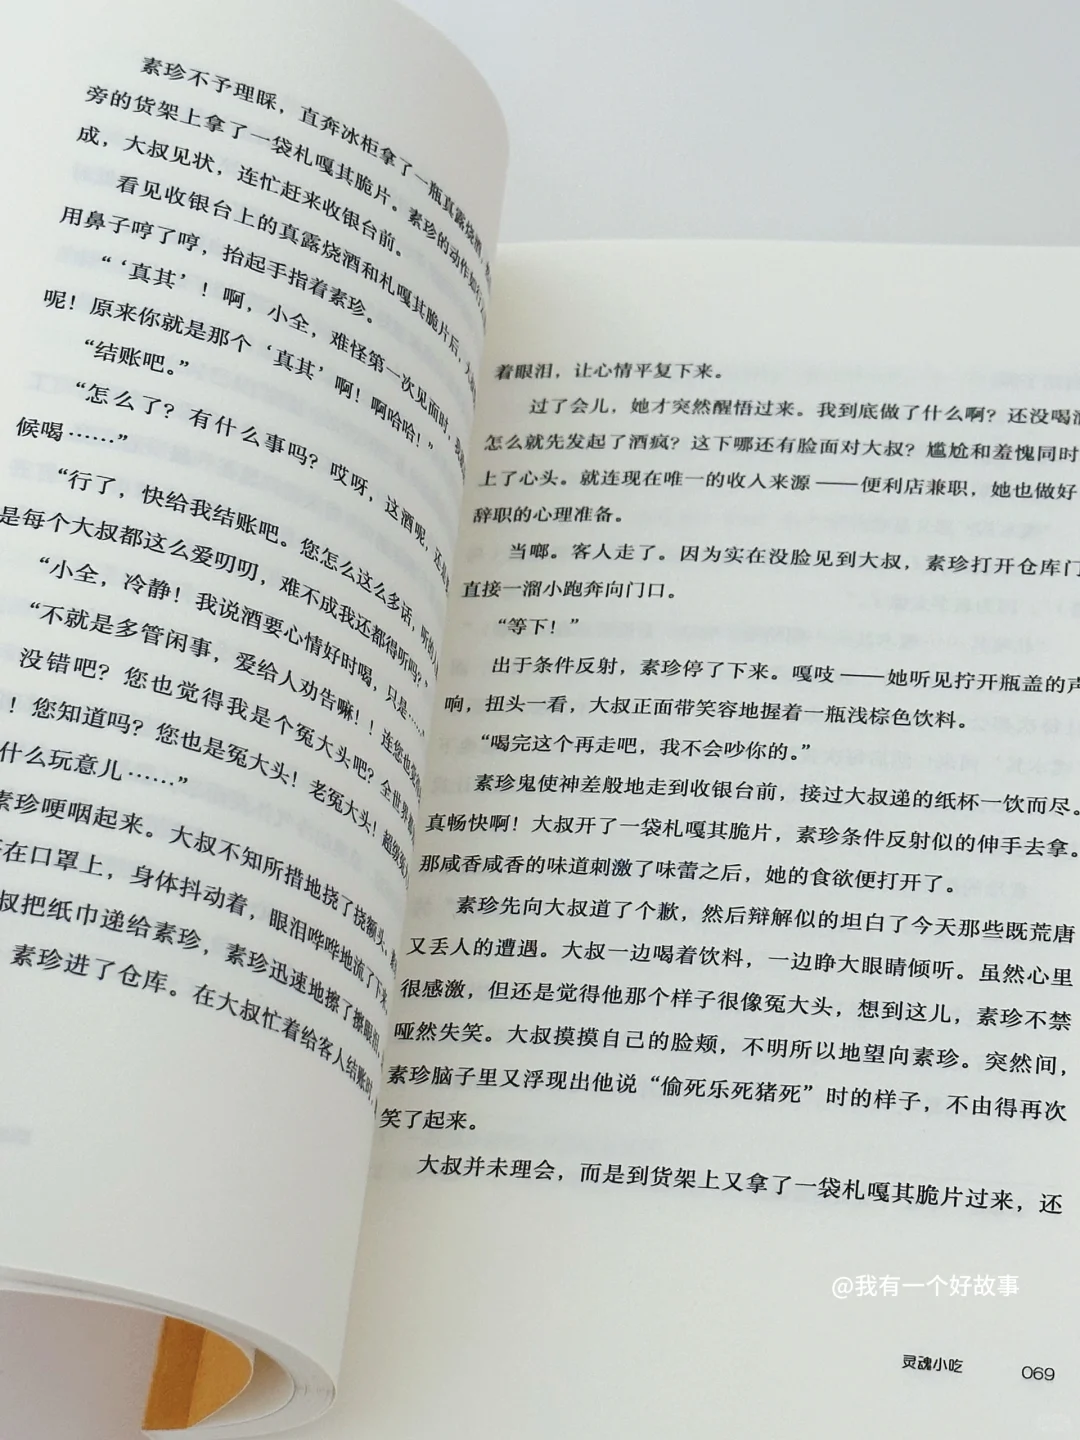 素珍不予理睬，直奔冰柜拿了一瓶真露烧酒，
旁的货架上拿了一袋札嘎其脆片。素珍的动作如行
成，大叔见状，连忙赶来收银台前。
看见收银台上的真露烧酒和札嘎其脆片后，大
用鼻子哼了哼，抬起手指着素珍。
“‘真其’！啊，小全，难怪第一次见面时，我
呢！原来你就是那个‘真其’啊！啊哈哈！”
“结账吧。”
“怎么了？有什么事吗？哎呀，这酒呢，还是
候喝……”
“行了，快给我结账吧。您怎么这么多话，听的
是每个大叔都这么爱叨叨，难不成我还都得听吗？”
“小全，冷静！我说酒要心情好时喝，只是……”
“不就是多管闲事，爱给人劝告嘛！！连您也觉
没错吧？您也觉得我是个冤大头吧？全世界都
！您知道吗？您也是冤大头！老冤大头！超级冤
什么玩意儿……”
素珍哽咽起来。大叔不知所措地挠了挠额头，
在口罩上，身体抖动着，眼泪哗哗地流了下来
叔把纸巾递给素珍，素珍迅速地擦了擦眼泪，
素珍进了仓库。在大叔忙着给客人结账时，
着眼泪，让心情平复下来。
过了会儿，她才突然醒悟过来。我到底做了什么啊？还没喝酒
怎么就先发起了酒疯？这下哪还有脸面对大叔？尴尬和羞愧同时
上了心头。就连现在唯一的收入来源——便利店兼职，她也做好
辞职的心理准备。
当啷。客人走了。因为实在没脸见到大叔，素珍打开仓库门
直接一溜小跑奔向门口。
“等下！”
出于条件反射，素珍停了下来。嘎吱——她听见拧开瓶盖的声
响，扭头一看，大叔正面带笑容地握着一瓶浅棕色饮料。
“喝完这个再走吧，我不会吵你的。”
素珍鬼使神差般地走到收银台前，接过大叔递的纸杯一饮而尽。
真畅快啊！大叔开了一袋札嘎其脆片，素珍条件反射似的伸手去拿。
那咸香咸香的味道刺激了味蕾之后，她的食欲便打开了。
素珍先向大叔道了个歉，然后辩解似的坦白了今天那些既荒唐
又丢人的遭遇。大叔一边喝着饮料，一边睁大眼睛倾听。虽然心里
很感激，但还是觉得他那个样子很像冤大头，想到这儿，素珍不禁
哑然失笑。大叔摸摸自己的脸颊，不明所以地望向素珍。突然间，
素珍脑子里又浮现出他说“偷死乐死猪死”时的样子，不由得再次
笑了起来。
大叔并未理会，而是到货架上又拿了一袋札嘎其脆片过来，还
@我有一个好故事
灵魂小吃 069